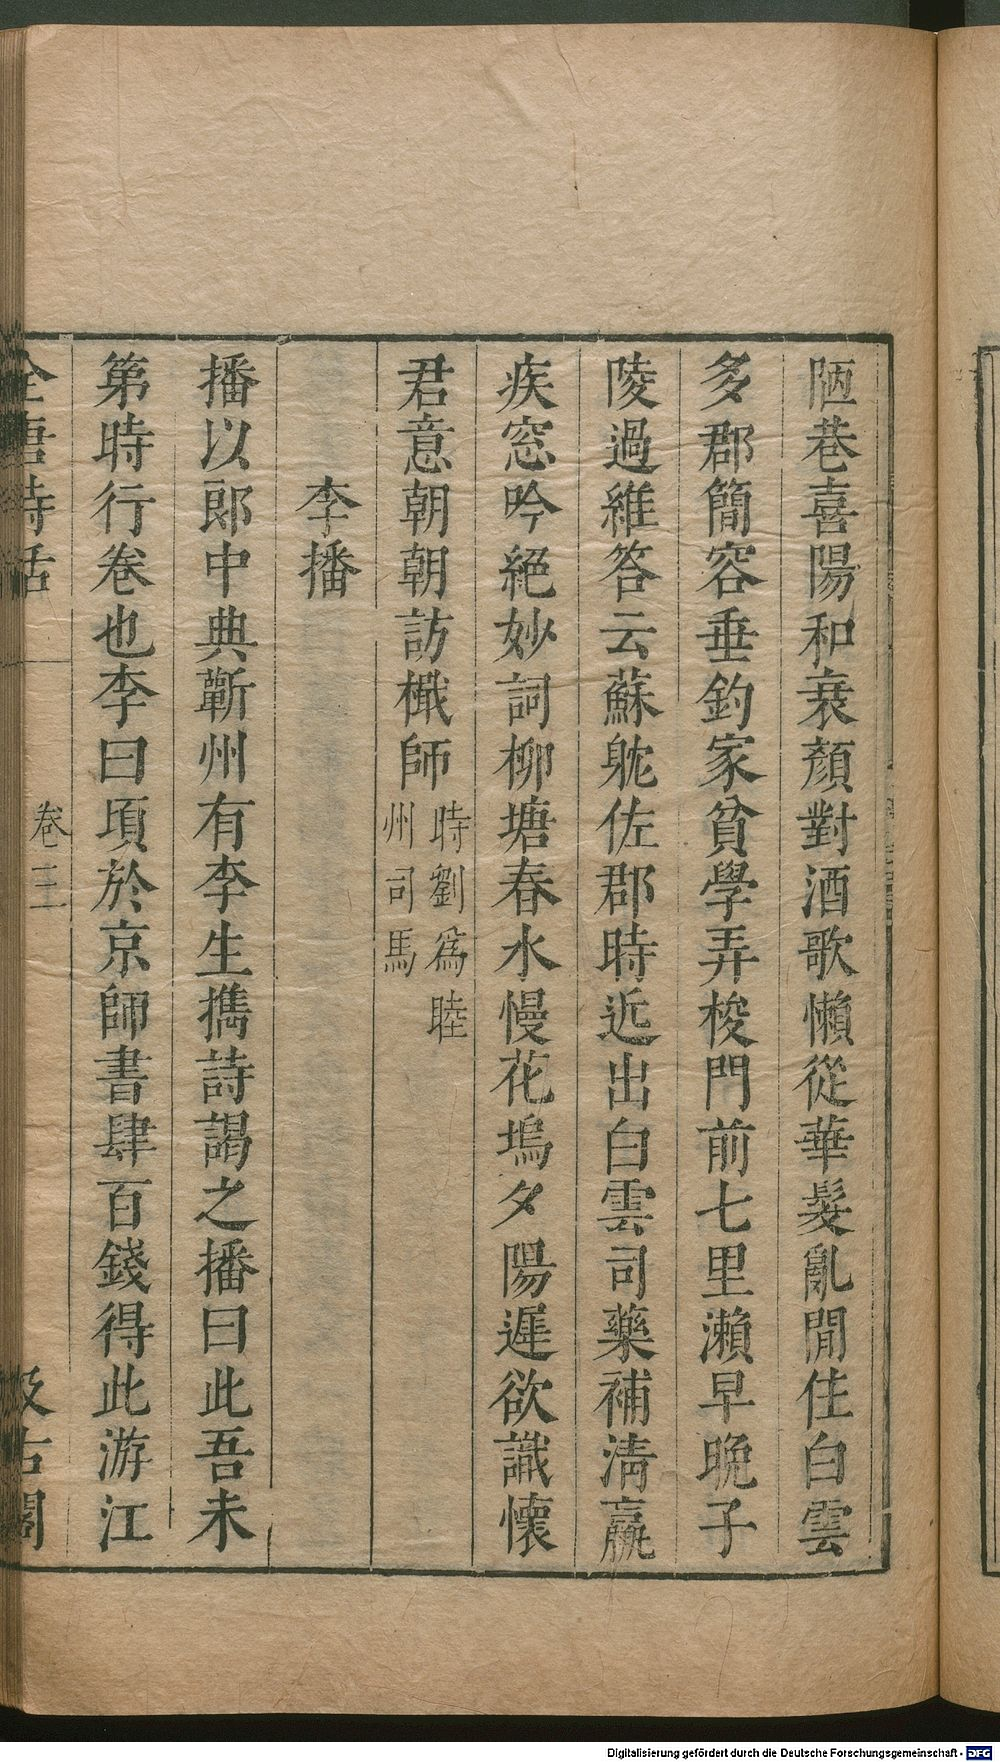 陋巷喜陽和衰顏對酒歌懶從華髮亂閒住白雲
多郡簡容垂釣家貧學弄梭門前七里瀨早晚子
陵過維答云蘇躭佐郡時近出白雲司藥補淸羸
疾窓吟絕妙詞柳塘春水慢花塢夕陽遲欲識懷
君意朝朝訪檝師
時劉爲睦
州司馬
李播
播以郞中典蘄州有李生擕詩謁之播曰此吾未
第時行卷也李曰頃於京師書肆百錢得此游江
全唐詩話
卷三
汲古閣
Digitalisierung gefördert durch die Deutsche Forschungsgemeinschaft - DFG